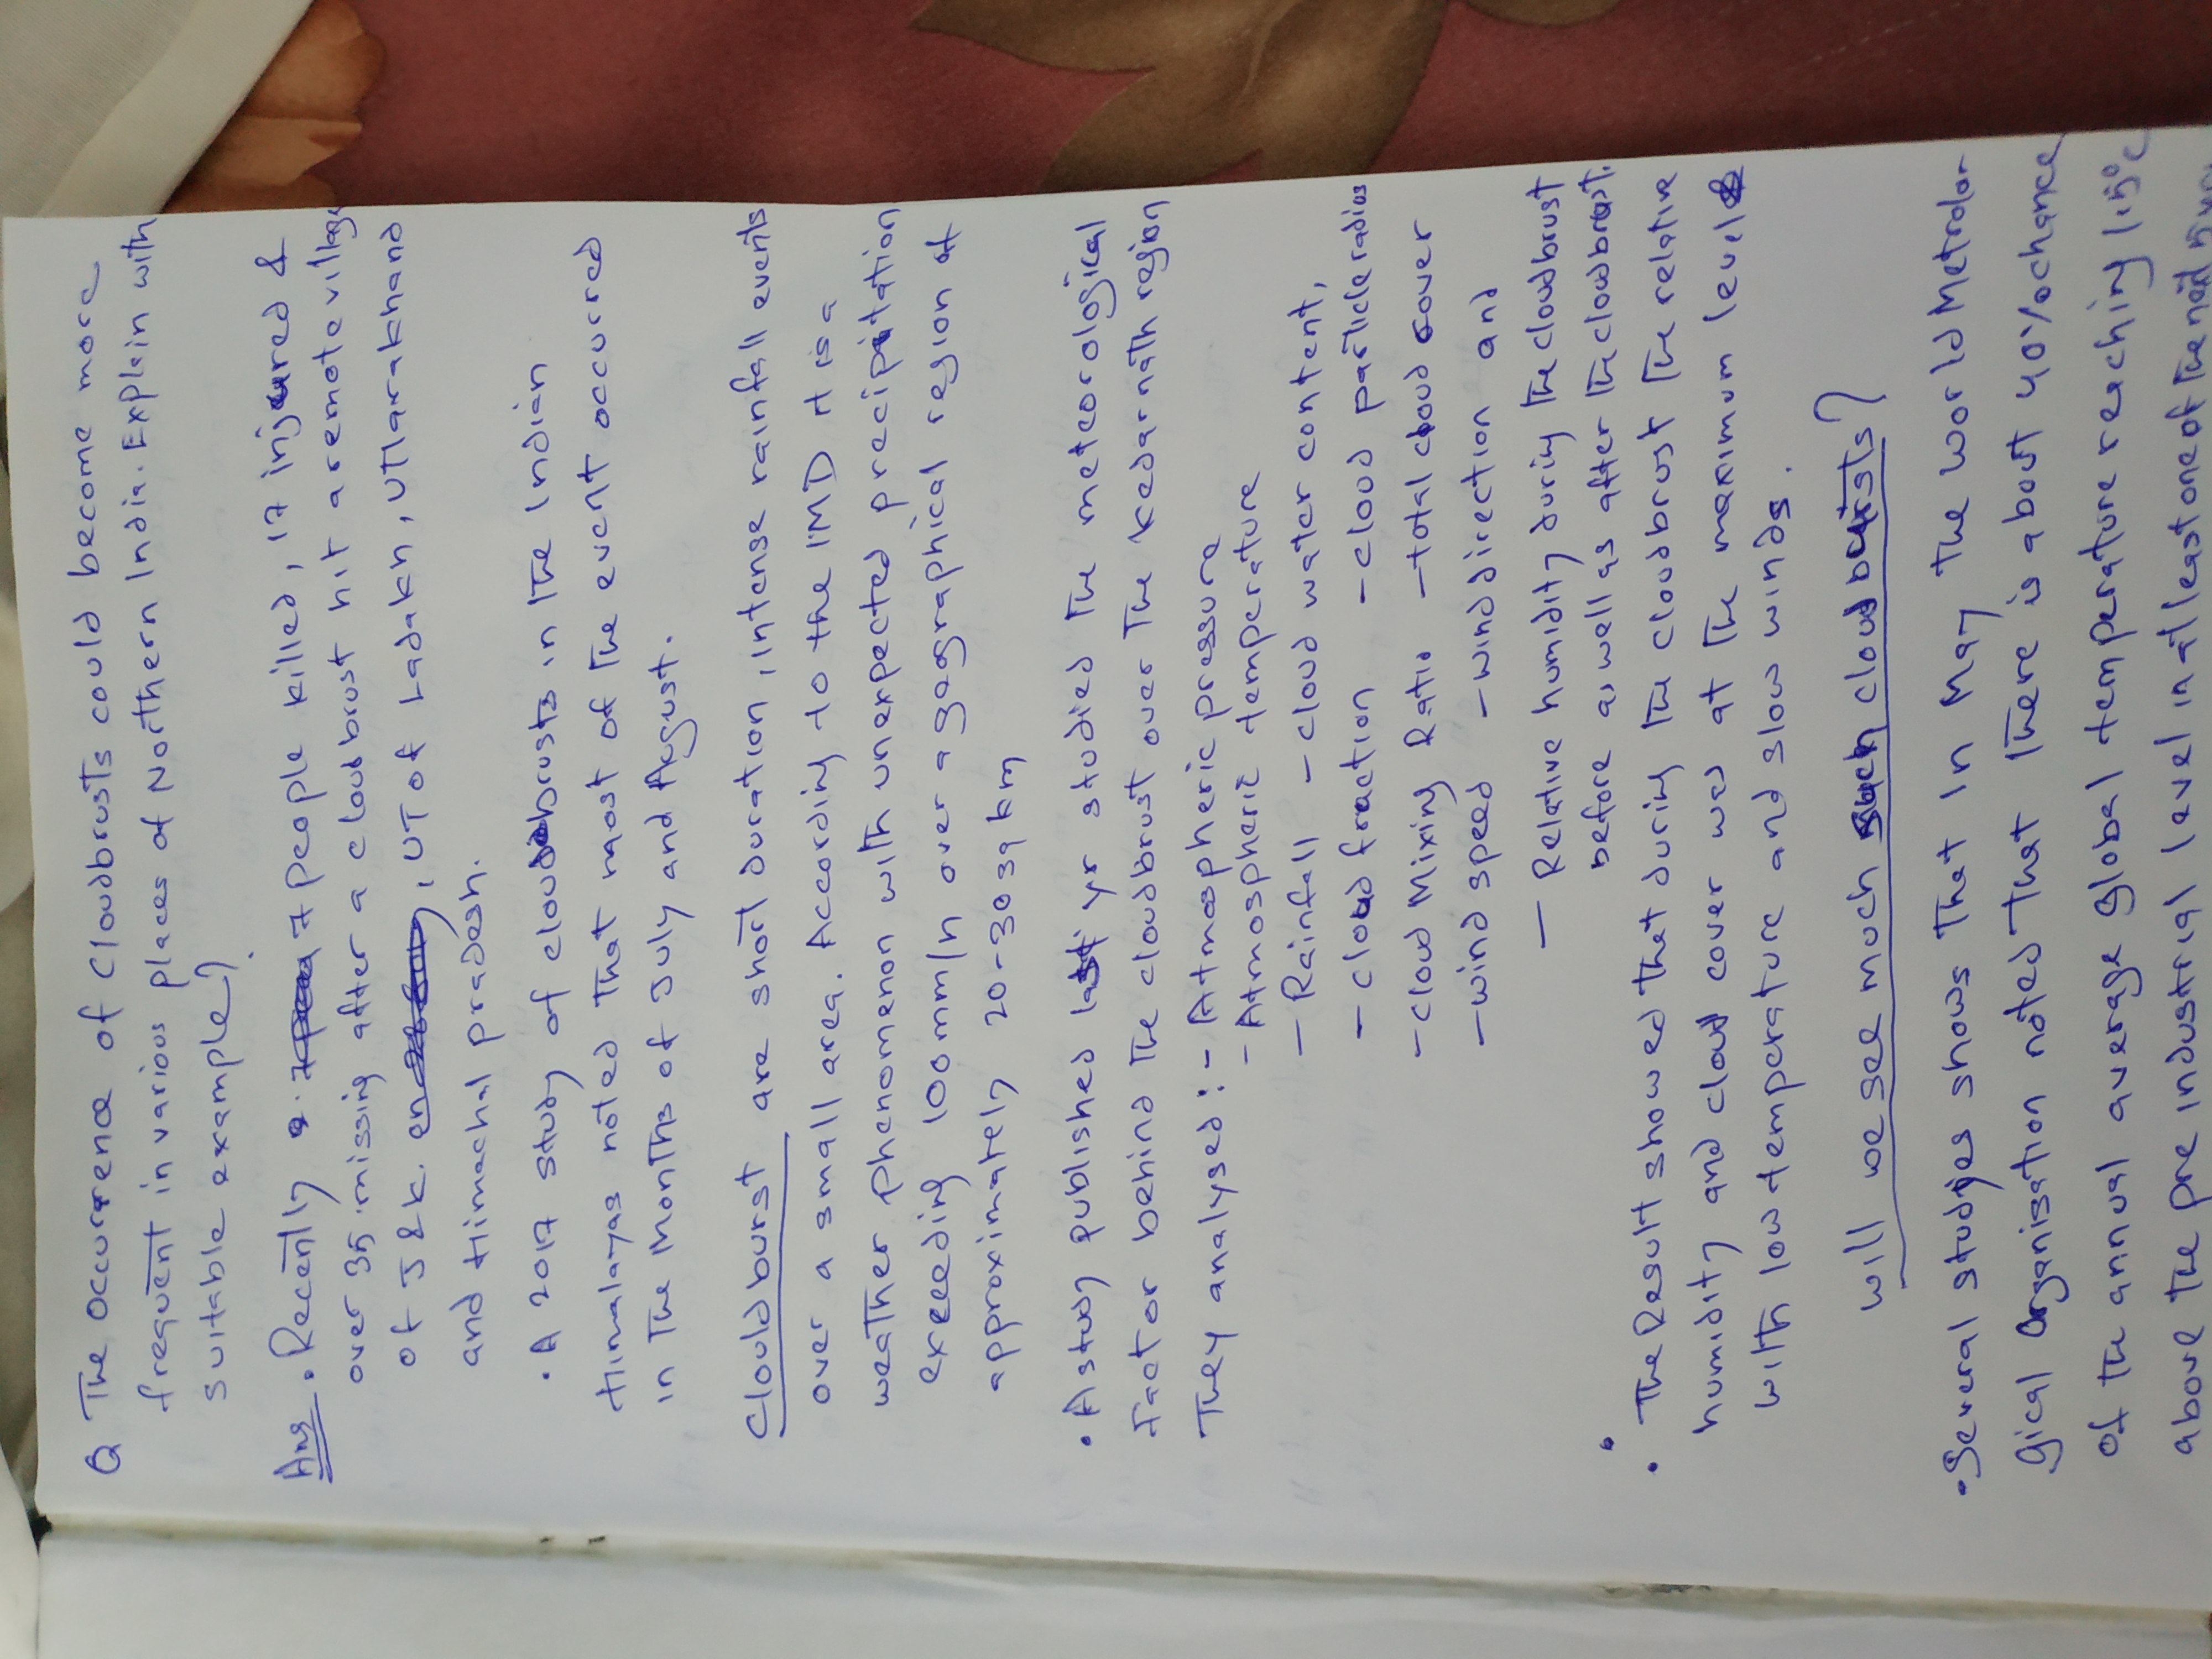 Q The occurence of Cloudbrusts could become more
frequent in various places of Northern India. Explain with
suitable example?
Ans. Recently 7 people killed, 17 injured &
over 35 missing after a cloudbrust hit a remote village
of J & K, UT of Ladakh, Uttarakhand
and Himachal pradesh.
• A 2017 study of cloudbrusts in the Indian
Himalayas noted that most of the event occured
in the months of July and August.
Clouldburst are short duration, intense rainfall events
over a small area. According to the IMD it is a
weather phenomenon with unexpected precipitation
exceeding 100mm/h over a geographical region of
approximately 20-30 sq km
• A study published last yr studied the meteorological
factor behind the cloudbrust over the kedarnath region
They analysed:- - Atmospheric pressure
- Atmospheric temperature
- Rainfall - cloud water content,
- cloud fraction - cloud particle radius
- cloud Mixing Ratio - total cloud cover
- wind speed - wind direction and
- Relative humidity during the cloudbrust
before as well as after the cloudbrast.
• The Result showed that during the cloudbrust the relative
humidity and cloud cover was at the maximum level
with low temperature and slow winds.
will we see much such cloud bursts?
• Several studies shows that in May the world Metrolo-
gical Organisation noted that there is about 40% chance
of the annual average global temperature reaching 1.5°C
above the pre industrial level in atleast one of the next